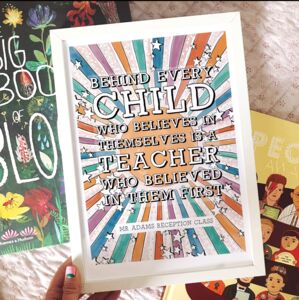 BIG
BOO
OF
BLO
Thames & Hudson
BEHIND EVERY
CHILD
WHO BELIEVES IN
THEMSELVES IS A
TEACHER
WHO BELIEVED
IN THEM FIRST
MR ADAMS RECEPTION CLASS
PEO